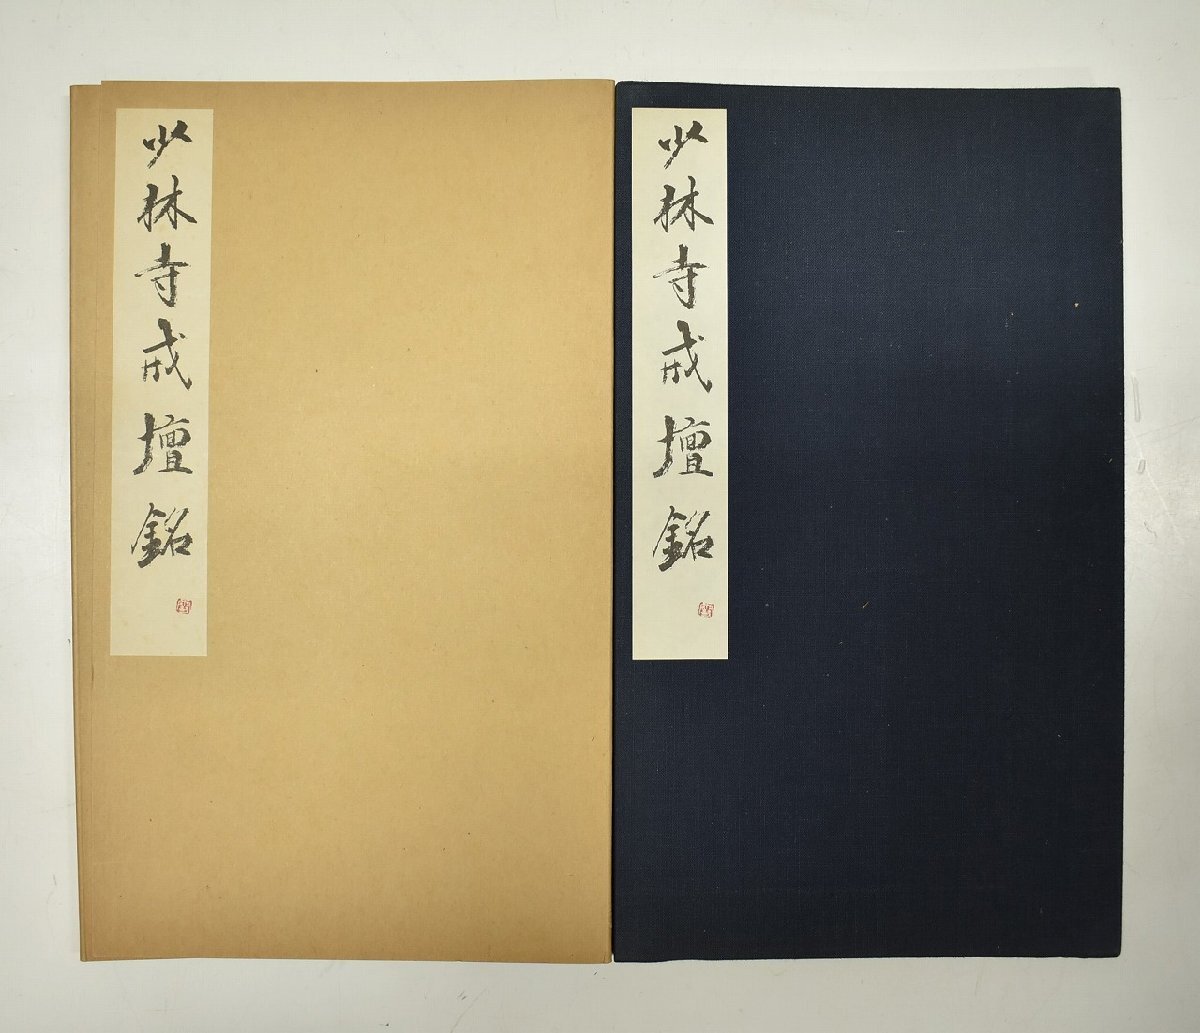 少林寺戒壇銘
少林寺戒壇銘